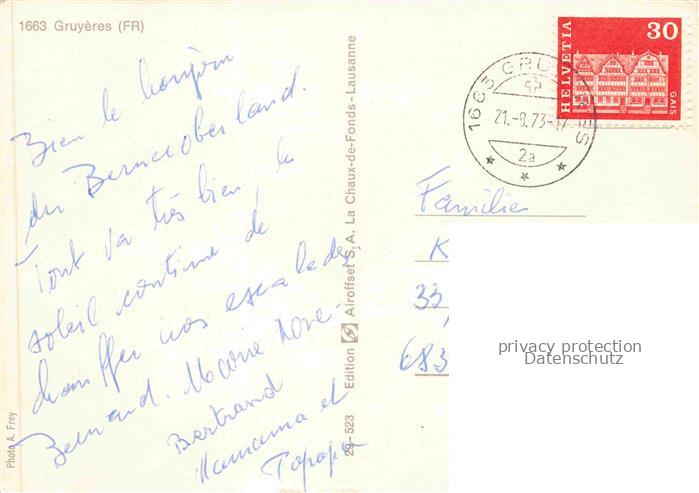 1663 Gruyères (FR)
Bien le bonjour
du Berneroberland.
Tout va très bien, le
soleil continue de
chauffer nos escalades.
Bernard. Marie
Bertrand
Mamama et
Papapa
Photo A. Frey
29-523 Edition Airoffset S.A. La Chaux-de-Fonds - Lausanne
HELVETIA
30
GAIS
1663 GRUYERES
21.-8.73-17
2a
Familie
K
33
683
privacy protection
Datenschutz